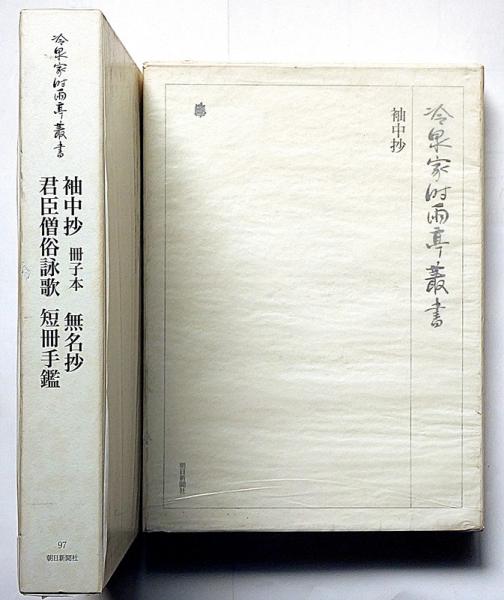 冷泉家時雨亭叢書
袖中抄 冊子本 無名抄
君臣僧俗詠歌 短冊手鑑
97
朝日新聞社
冷泉家時雨亭叢書
袖中抄
朝日新聞社